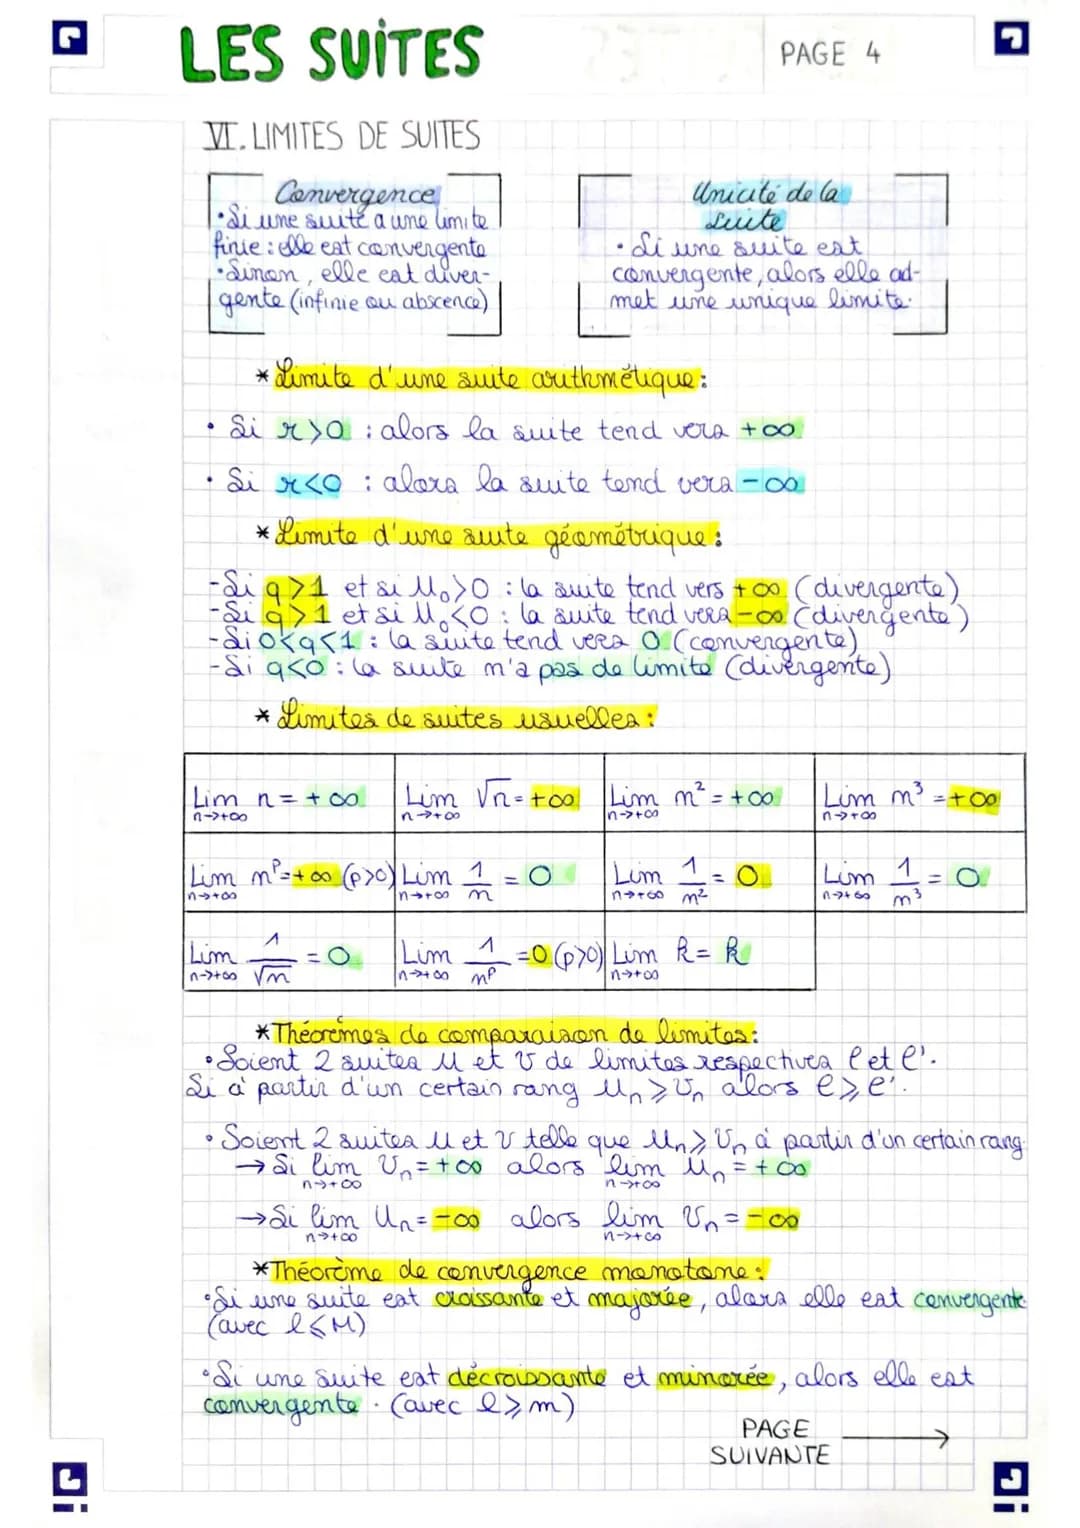 LES SUITES
PAGE 4
VI. LIMITES DE SUITES
Convergence
• Si une suite a une limite
finie : elle est convergente
• Sinon, elle est diver-
gente (infinie ou abscence)
Unicité de la
suite
• Si une suite est
convergente, alors elle ad-
met une unique limite.
* Limite d'une suite arithmétique :
• Si r>0 : alors la suite tend vers +∞
• Si r<0 : alors la suite tend vers -∞
* Limite d'une suite géométrique :
- Si q>1 et si U₀>0 : la suite tend vers +∞ (divergente)
- Si q>1 et si U₀<0 : la suite tend vers -∞ (divergente)
- Si 0<q<1 : la suite tend vers 0 (convergente)
- Si q<0 : la suite n'a pas de limite (divergente)
* Limites de suites usuelles :
Lim n = +∞ Lim √n = +∞ Lim n² = +∞ Lim n³ = +∞
n→+∞ n→+∞ n→+∞ n→+∞
Lim nᵖ = +∞ (p>0) Lim 1/n = 0 Lim 1/n² = 0 Lim 1/n³ = 0
n→+∞ n→+∞ n→+∞ n→+∞
Lim 1/√n = 0 Lim 1/nᵖ = 0 (p>0) Lim k = k
n→+∞ n→+∞ n→+∞
* Théorèmes de comparaison de limites :
• Soient 2 suites U et V de limites respectives l et l'.
Si à partir d'un certain rang Uₙ ⩾ Vₙ alors l ⩾ l'.
• Soient 2 suites U et V telle que Uₙ ⩾ Vₙ à partir d'un certain rang
→ Si lim Vₙ = +∞ alors lim Uₙ = +∞
n→+∞ n→+∞
→ Si lim Uₙ = -∞ alors lim Vₙ = -∞
n→+∞ n→+∞
* Théorème de convergence monotone :
• Si une suite est croissante et majorée, alors elle est convergente
(avec l ⩽ M)
• Si une suite est décroissante et minorée, alors elle est
convergente. (avec l ⩾ m)
PAGE
SUIVANTE →